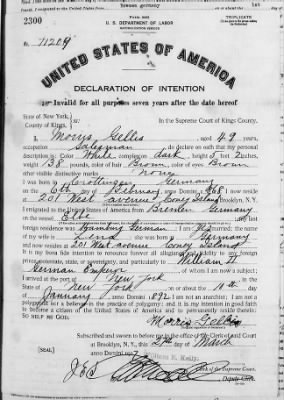 2300
Form 2203
U. S. DEPARTMENT OF LABOR
NATURALIZATION SERVICE
TRIPLICATE
No. 71209
UNITED STATES OF AMERICA
DECLARATION OF INTENTION
Invalid for all purposes seven years after the date hereof
State of New York,
County of Kings,
In the Supreme Court of Kings County.
I, Morris Gellis, aged 49 years,
occupation Salesman, do declare on oath that my personal
description is: Color White, complexion dark, height 5 feet 2 inches,
weight 138 pounds, color of hair Brown, color of eyes Brown
other visible distinctive marks none
I was born in Germany
on the 6th day of February, anno Domini 1868; I now reside
at 201 West avenue Coney Island
I emigrated to the United States of America from Bremen Germany
on the vessel Elbe; my last
foreign residence was Hamburg German; I am married; the name
of my wife is Lena; she was born in Germany
and now resides at 201 West avenue Coney Island
It is my bona fide intention to renounce forever all allegiance and fidelity to any foreign
prince, potentate, state, or sovereignty, and particularly to William II
German Emperor, of whom I am now a subject;
I arrived at the port of New York, in the
State of New York, on or about the 10th day
of January, anno Domini 1892; I am not an anarchist; I am not a
polygamist nor a believer in the practice of polygamy; and it is my intention in good faith
to become a citizen of the United States of America and to permanently reside therein:
SO HELP ME GOD.
Morris Gellis
Subscribed and sworn to before me in the office of the Clerk of said Court
at Brooklyn, N. Y., this day of March
anno Domini
[SEAL]
Clerk of the Supreme Court.